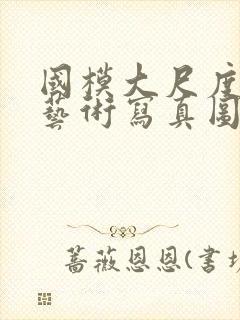 國模大尺度
藝術寫真圖
薔薇恩恩(书坊